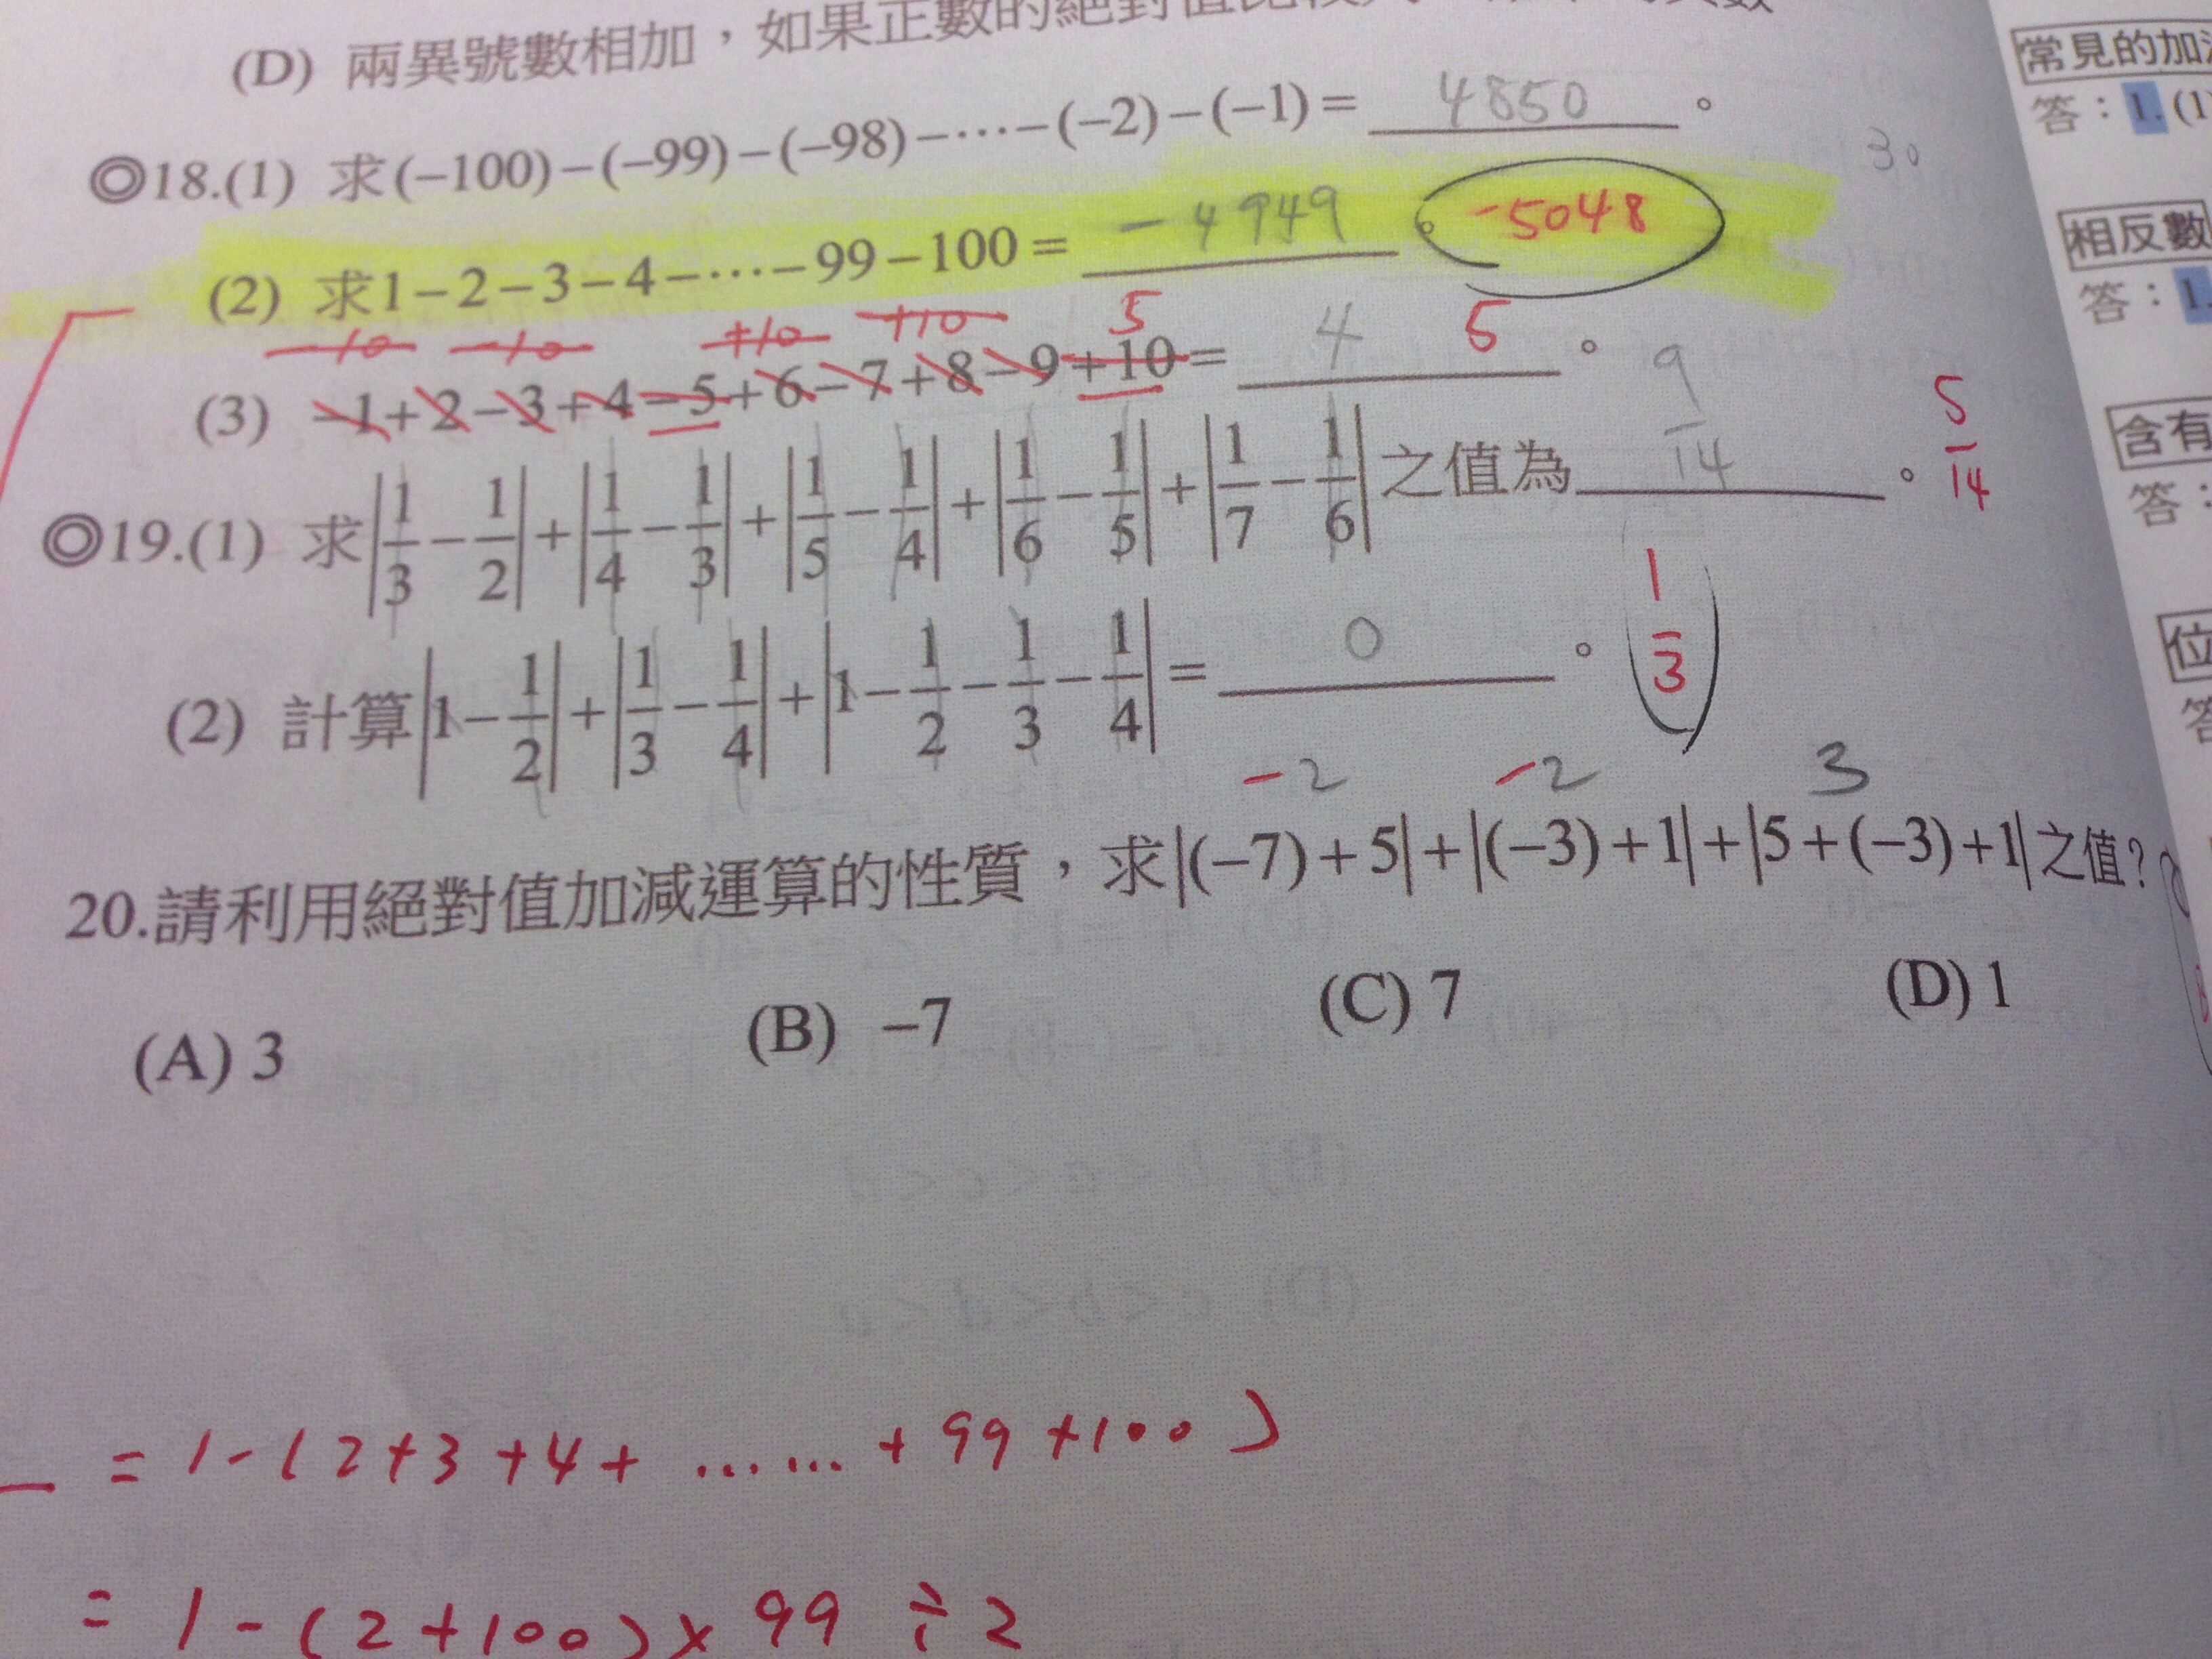 (D) 兩異號數相加，如果正數的絕對值比較大
◎18.(1) 求(−100)−(−99)−(−98)−⋯−(−2)−(−1)= 4850 。
30
(2) 求1−2−3−4−⋯−99−100= −4949 。 −5048
−10 −10 +10 +10 5
(3) −1+2−3+4−5+6−7+8−9+10= 4 5 。
◎19.(1) 求|1/3−1/2|+|1/4−1/3|+|1/5−1/4|+|1/6−1/5|+|1/7−1/6|之值為 9/14 。 5/14
(2) 計算|1−1/2|+|1/3−1/4|+|1−1/2−1/3−1/4|= 0 。 1/3
−2 −2 3
20.請利用絕對值加減運算的性質，求|(−7)+5|+|(−3)+1|+|5+(−3)+1|之值？
(A) 3 (B) −7 (C) 7 (D) 1
= 1−(2+3+4+⋯⋯+99+100)
= 1−(2+100)×99÷2
常見的加
答：1.(1)
相反數
答：1.
含有
答：
位
答